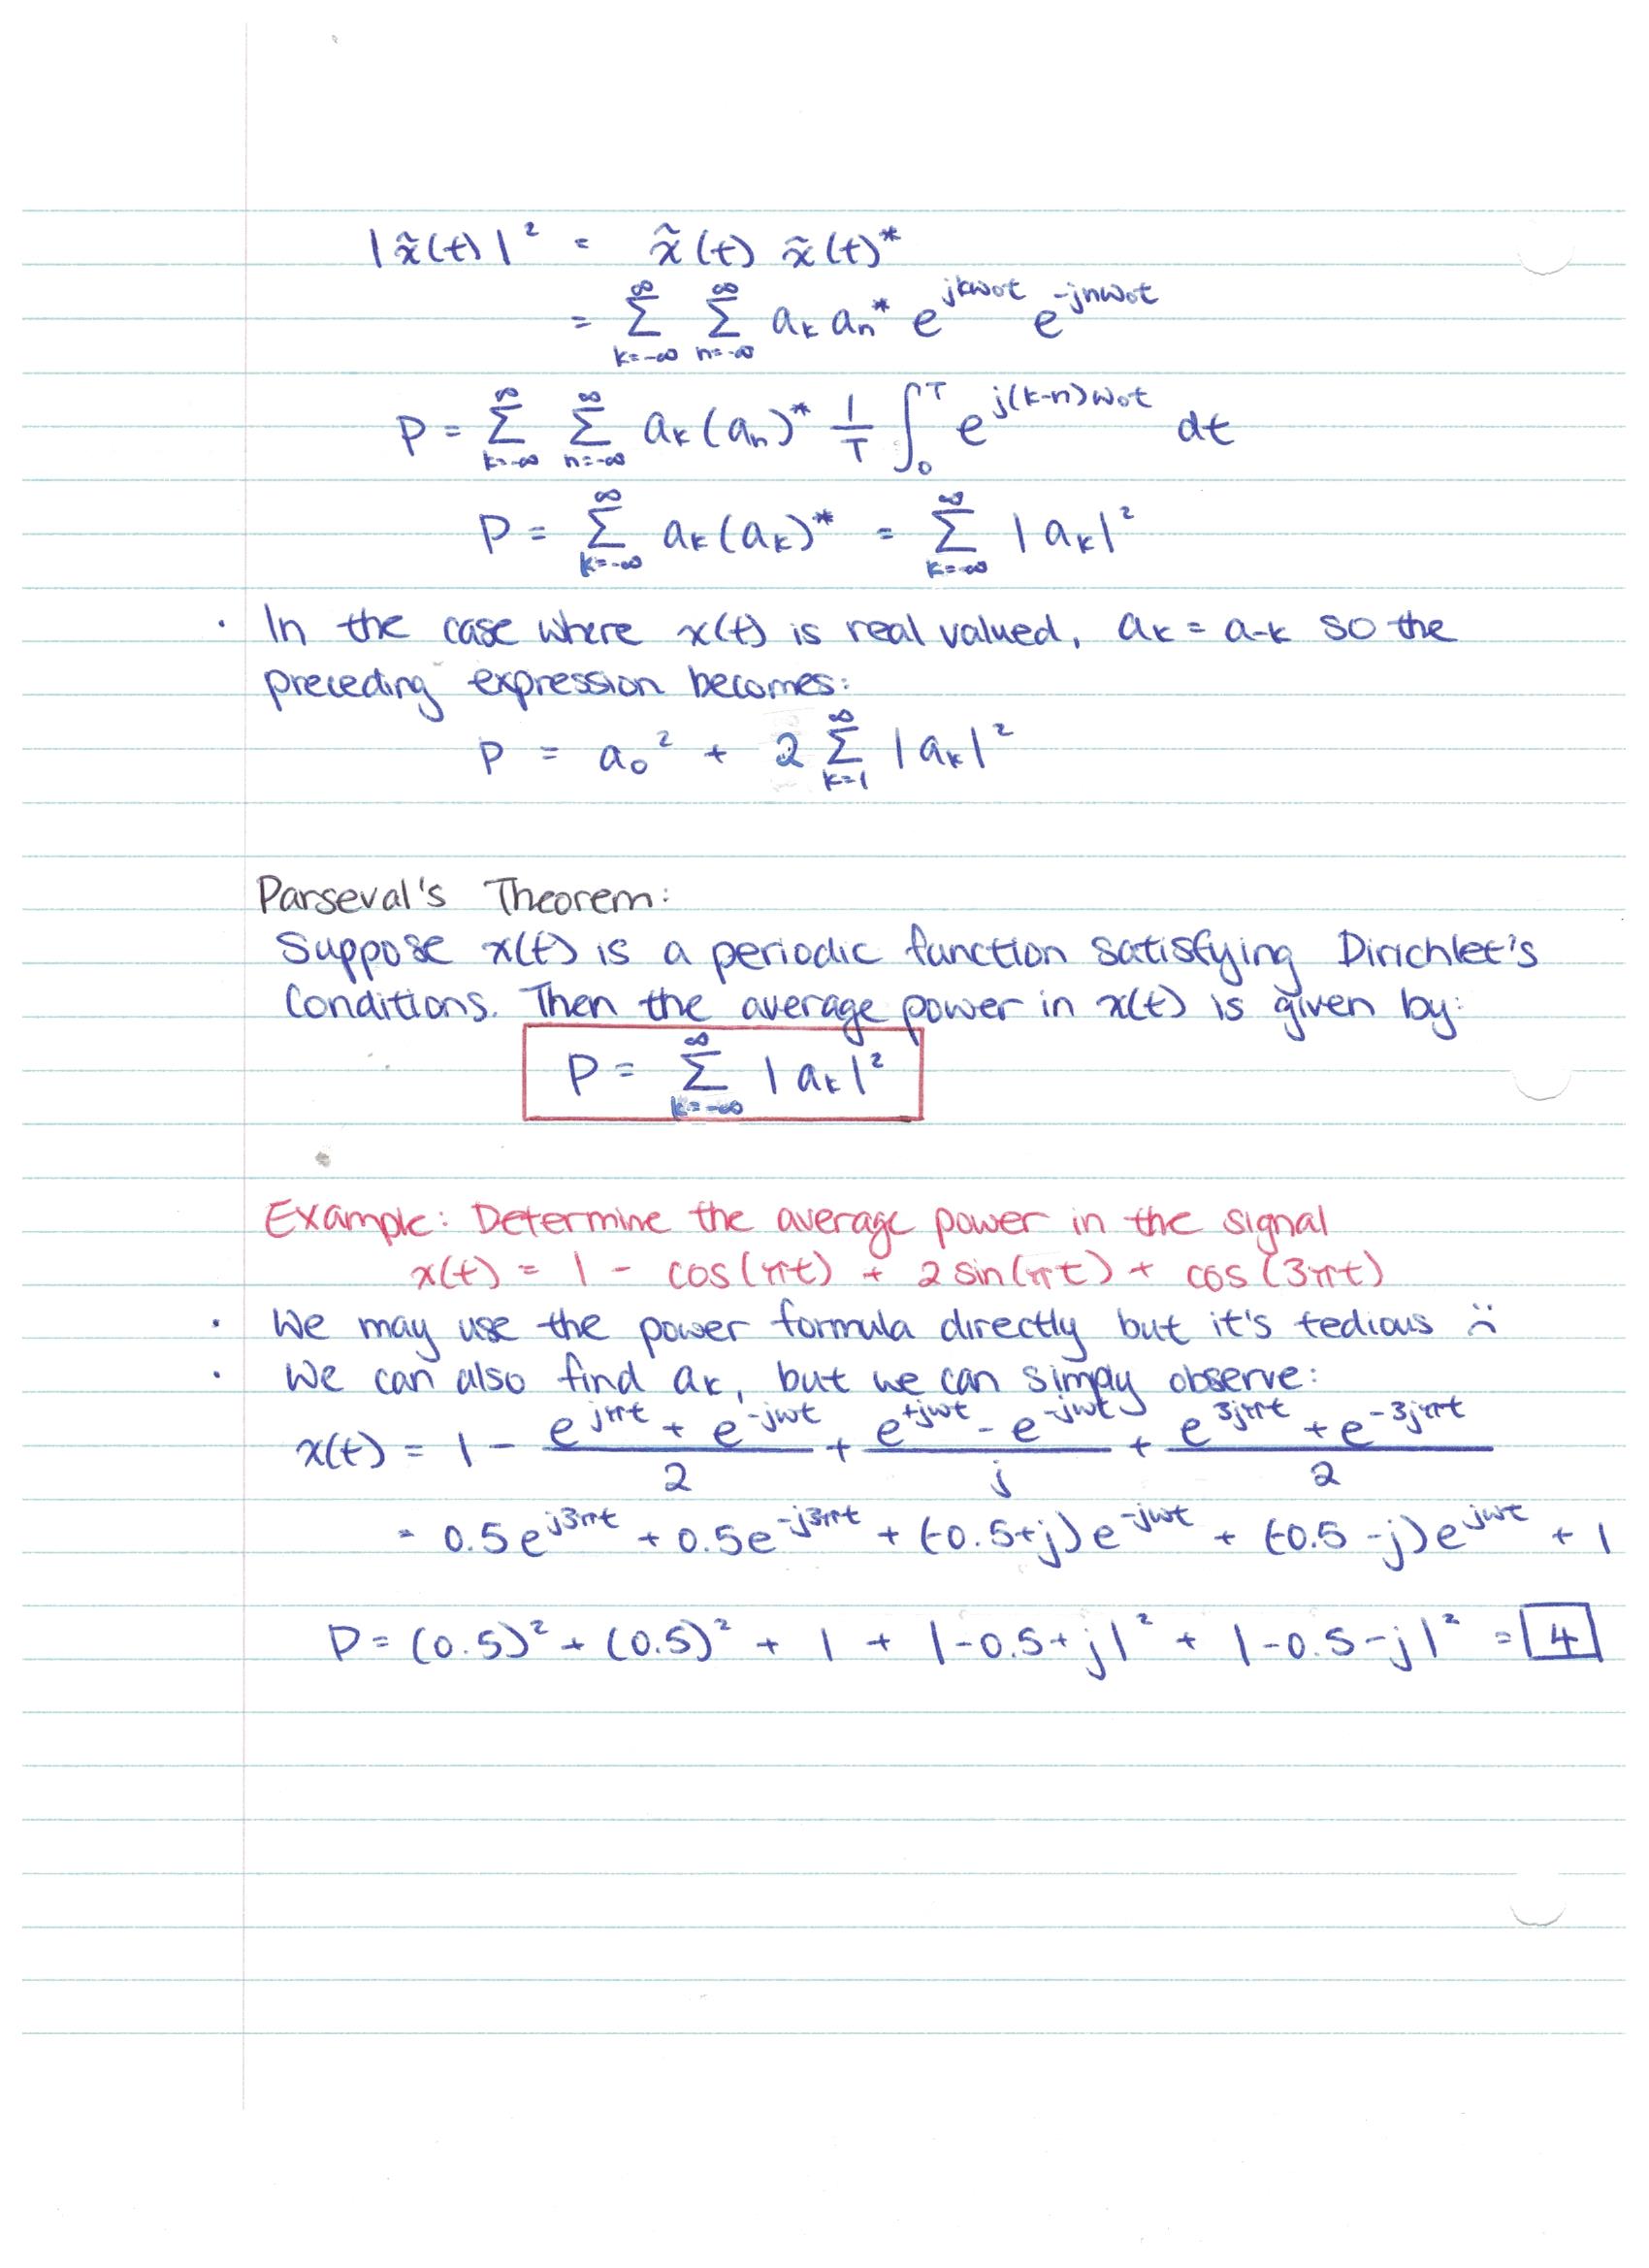 |x̃(t)|² = x̃(t) x̃(t)*
= ∞Σk=-∞ ∞Σn=-∞ aₖ aₙ* e^{jkω₀t} e^{-jnω₀t}
P = ∞Σk=-∞ ∞Σn=-∞ aₖ(aₙ)* 1/T ∫₀ᵀ e^{j(k-n)ω₀t} dt
P = ∞Σk=-∞ aₖ(aₖ)* = ∞Σk=-∞ |aₖ|²
· In the case where x(t) is real valued, aₖ = a₋ₖ so the
preceding expression becomes:
P = a₀² + 2 ∞Σk=1 |aₖ|²
Parseval's Theorem:
Suppose x(t) is a periodic function satisfying Dirichlet's
Conditions. Then the average power in x(t) is given by:
P = ∞Σk=-∞ |aₖ|²
Example: Determine the average power in the signal
x(t) = 1 - cos(πt) + 2 sin(πt) + cos(3πt)
· We may use the power formula directly but it's tedious :(
· We can also find aₖ, but we can simply observe:
x(t) = 1 - (e^{jπt} + e^{-jωt})/2 + (e^{+jωt} - e^{-jωt})/j + (e^{3jπt} + e^{-3jπt})/2
= 0.5e^{j3πt} + 0.5e^{-j3πt} + (-0.5+j)e^{-jωt} + (-0.5-j)e^{jωt} + 1
P = (0.5)² + (0.5)² + 1 + |-0.5+j|² + |-0.5-j|² = 4